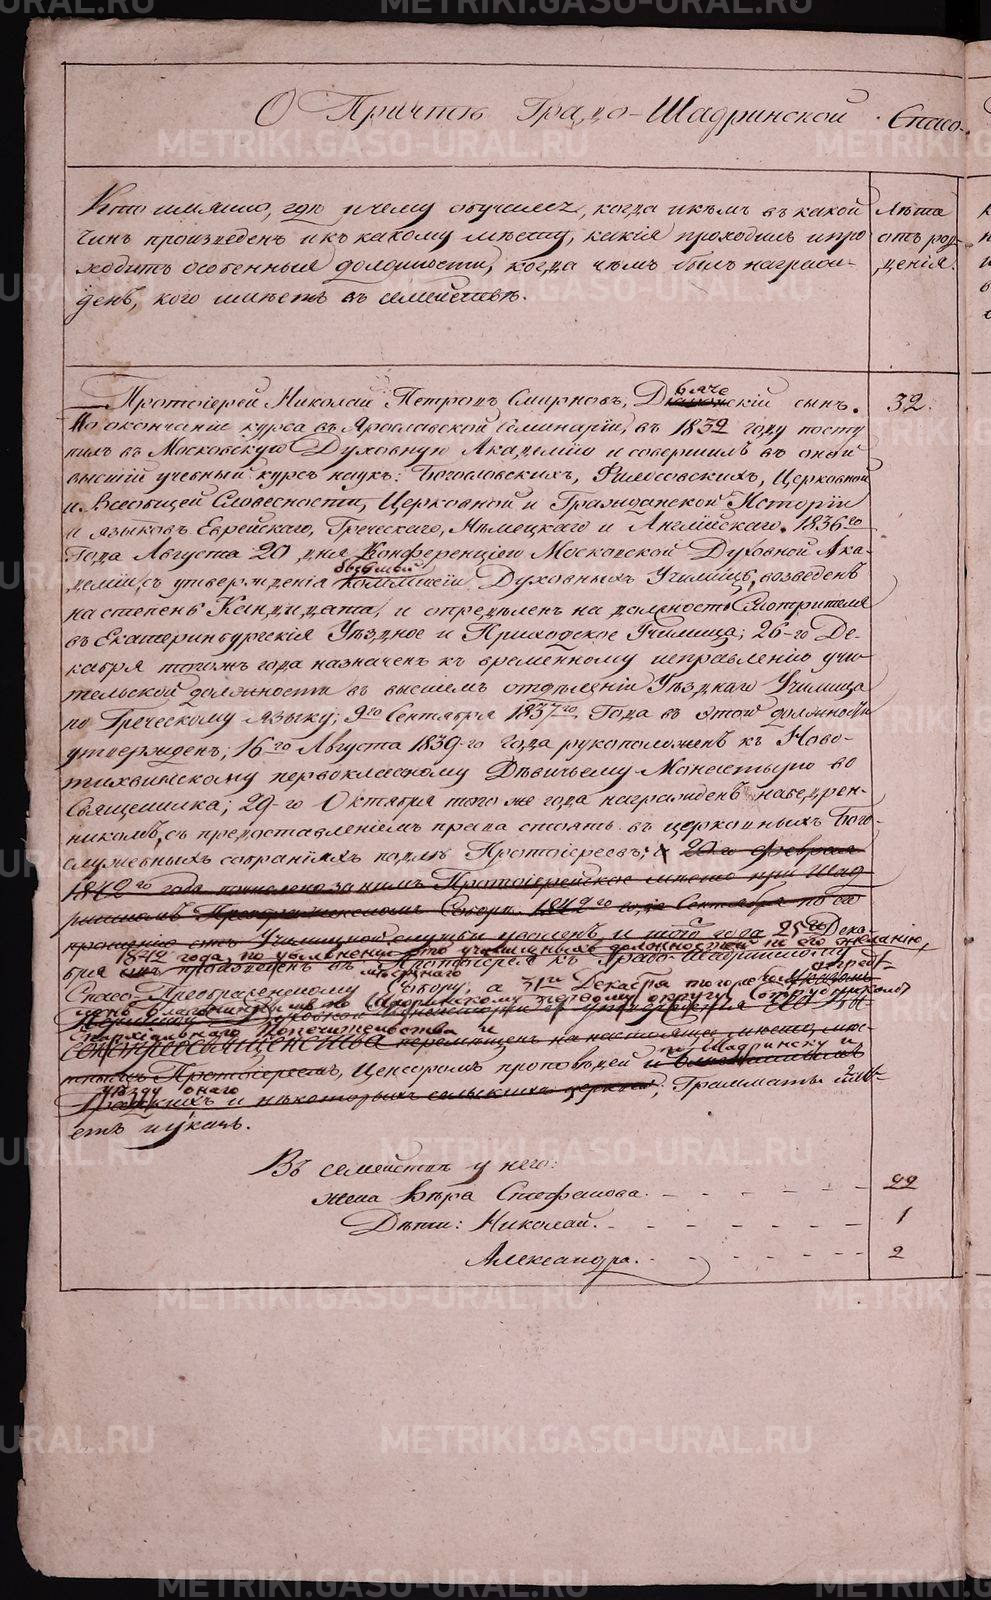 О Причтѣ Градо-Шадринской Спасо-
Кто имянно, гдѣ и чему обучался, когда и кѣмъ въ какой
чинъ произведенъ и къ какому мѣсту, какія проходилъ и про
ходитъ особенныя должности, когда чѣмъ былъ награж-
денъ, кого имѣетъ въ семействѣ.
Лѣта
отъ рож-
денія.
Протоіерей Николай Петровъ Смирновъ, Дьяческій сынъ. 32.
По окончаніи курса въ Ярославской Семинаріи, въ 1832 году посту
пилъ въ Московскую Духовную Академію и совершилъ въ оной
высшій учебный курсъ наукъ: Богословскихъ, Философскихъ, Церковной
и Всеобщей Словесности, Церковной и Гражданской Исторіи
и языковъ Еврейскаго, Греческаго, Нѣмецкаго и Англійскаго. 1836го
Года Августа 20 дня Конференціею Московской Духовной Ака-
деміи, съ утвержденія бывшей Коммисіи Духовныхъ Училищъ, возведенъ
на степень Кандидата, и опредѣленъ на должность Смотрителя
въ Екатеринбургскія Уѣздное и Приходское Училища; 26-го Де-
кабря тогожъ года назначенъ къ временному исправленію учи-
тельской должности въ высшемъ отдѣленіи Уѣзднаго Училища
по Греческому Языку; 9го Сентября 1837го Года въ этой должности
утвержденъ; 16го Августа 1839-го года рукоположенъ къ Ново-
тихвинскому первоклассному Дѣвичьему Монастырю во
Священника; 29-го Октября того же года награжденъ набедрен-
никомъ, съ предоставленіемъ права стоять въ церковныхъ Бого-
служебныхъ собраніяхъ подлѣ Протоіереевъ; 20го Февраля
1842го года зачислено за нимъ Протоіерейское мѣсто при Шад
ринскомъ Преображенскомъ Соборѣ. 1842го года Сентября
прошенію отъ Училищной службы уволенъ, и того года 25го Дека-
1842 года, по увольненіи отъ училищныхъ должностей по его желанію,
бря произведенъ въ Протоіерея къ Градо-Шадринскому
Спасо-Преображенскому Собору, а 31го Декабря того
Благочиннымъ Шадринскому первому округу, Сотрудникомъ
Попечительства и
перемѣщенъ на настоящее мѣсто,
Протоіереемъ, Цензоромъ проповѣдей по Шадринску и
уѣзду онаго
и нѣкоторыхъ сельскихъ церквей; Грамматы имѣ-
етъ и указъ.
Въ семействѣ у него:
жена Вѣра Стефанова. 22
Дѣти: Николай. 1
Александра. 2